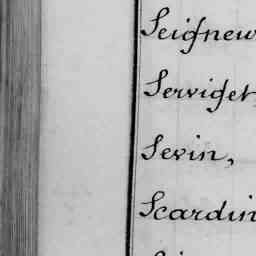 Seigneu
Serviget
Sevin,
Scardin